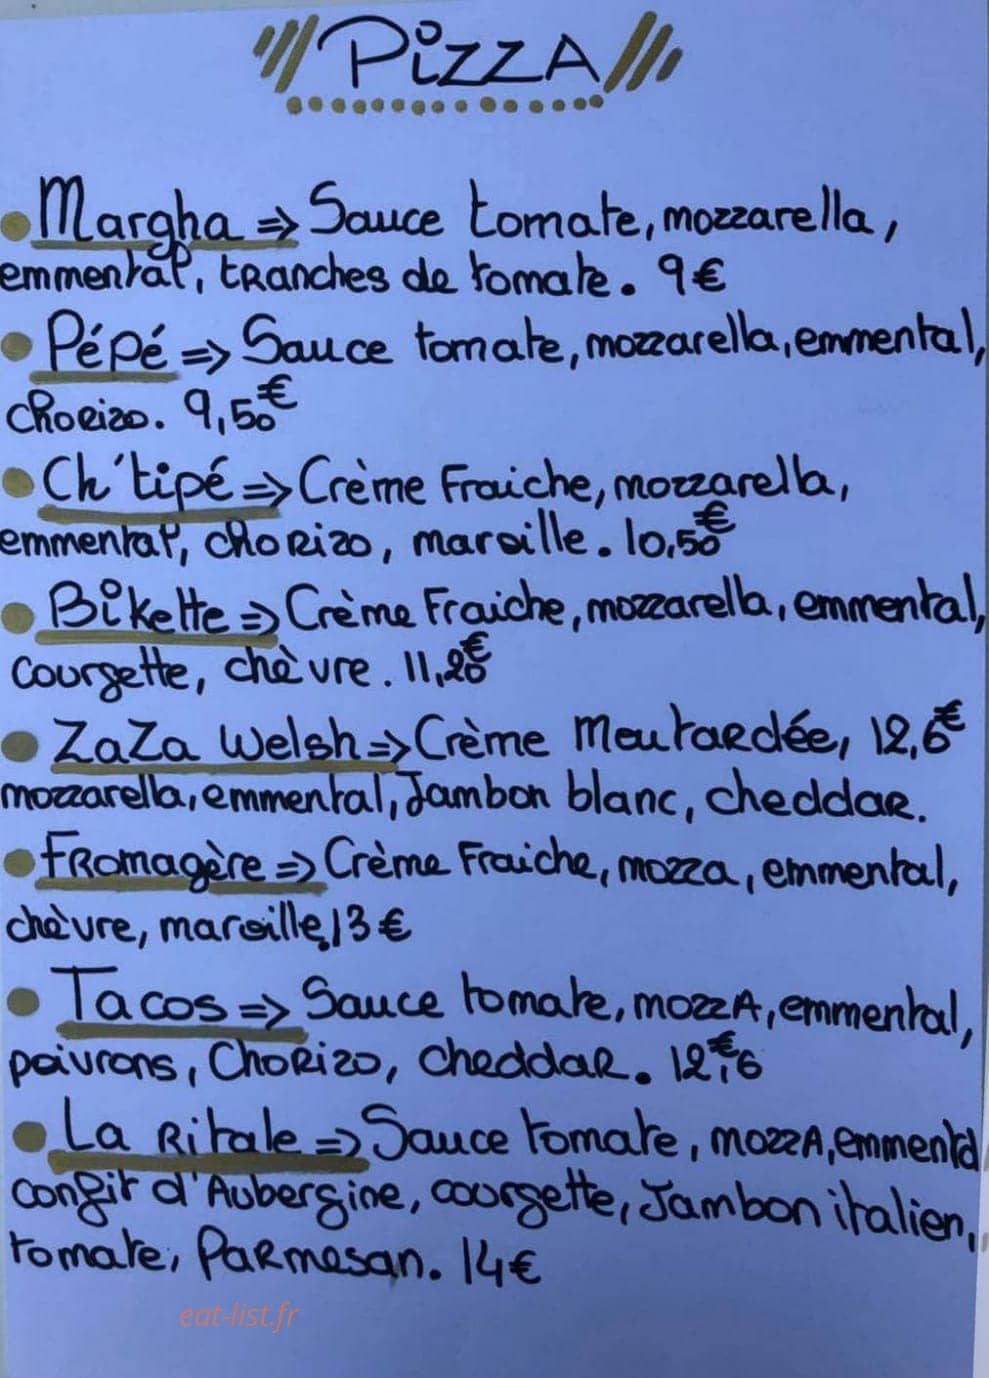 PiZZA
Margha => Sauce tomate, mozzarella,
emmental, tranches de tomate. 9€
Pépé => Sauce tomate, mozzarella, emmental,
chorizo. 9,50€
Ch'tipé => Crème Fraiche, mozzarella,
emmental, chorizo, maroille. 10,50€
Bikette => Crème Fraiche, mozzarella, emmental,
courgette, chèvre. 11,20€
ZaZa Welsh => Crème Moutardée, 12,6€
mozzarella, emmental, Jambon blanc, cheddar.
Fromagère => Crème Fraiche, mozza, emmental,
chèvre, maroille, 13€
Tacos => Sauce tomate, mozzA, emmental,
poivrons, Chorizo, cheddar. 12€,6
La Ritale => Sauce tomate, mozzA, emmental
confit d'Aubergine, courgette, Jambon italien,
tomate, Parmesan. 14€
eat-list.fr